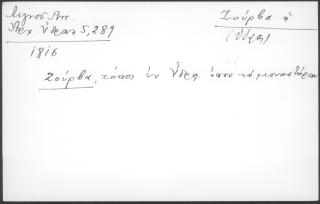 Λιγνός Αντ.
Αρχ. Ύδρας 5, 289
1816
Ζούρβα ἡ
(Ύδρα).
Ζούρβα, τόπος ἐν Ὕδρᾳ ὅπου τὸ μοναστήριον